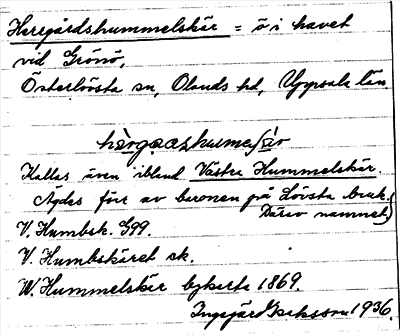 Herrgårdshummelskär = ö i havet
vid Gräsö,
Österlövsta sn, Olands hd, Uppsala län.
Kallas även ibland Västra Hummelskär.
Ägdes förr av baronen på Lövsta bruk.
(Därav namnet)
V. Humbsk. G99.
V. Humbskäret sk.
W. Hummelskär bykarta 1869.
Ingegärd Isaksson 1936.